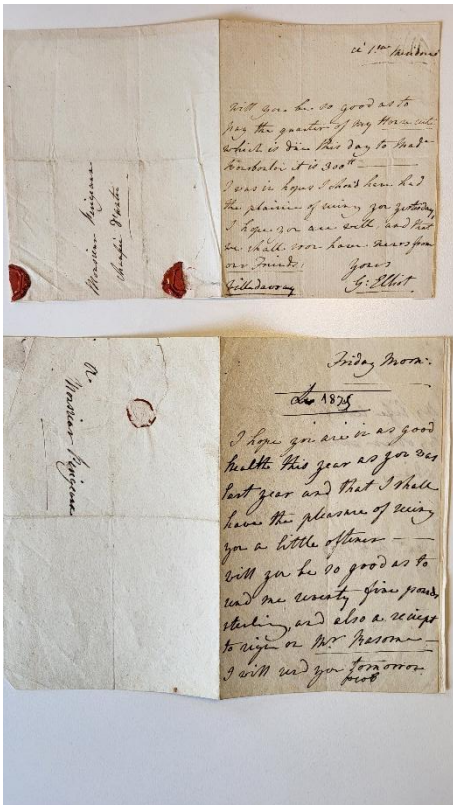 Will you be so good as to
pay the quarter of my House
which is due this day to Made
it is 300
I was in hopes I should have had
the plaisire of seing you yesterday,
I hope you are well and that
we shall soon have news from
our Friends.
yours
Villedavray
G: Elliot
Monsieur
Friday Morn:
I hope you are in as good
health this year as you was
last year and that I shall
have the pleasure of seing
you a little oftener
will you be so good as to
send me seventy five pounds
sterling, and also a reciept
to sign or Mr
I will send you tomorrow
A
Monsieur